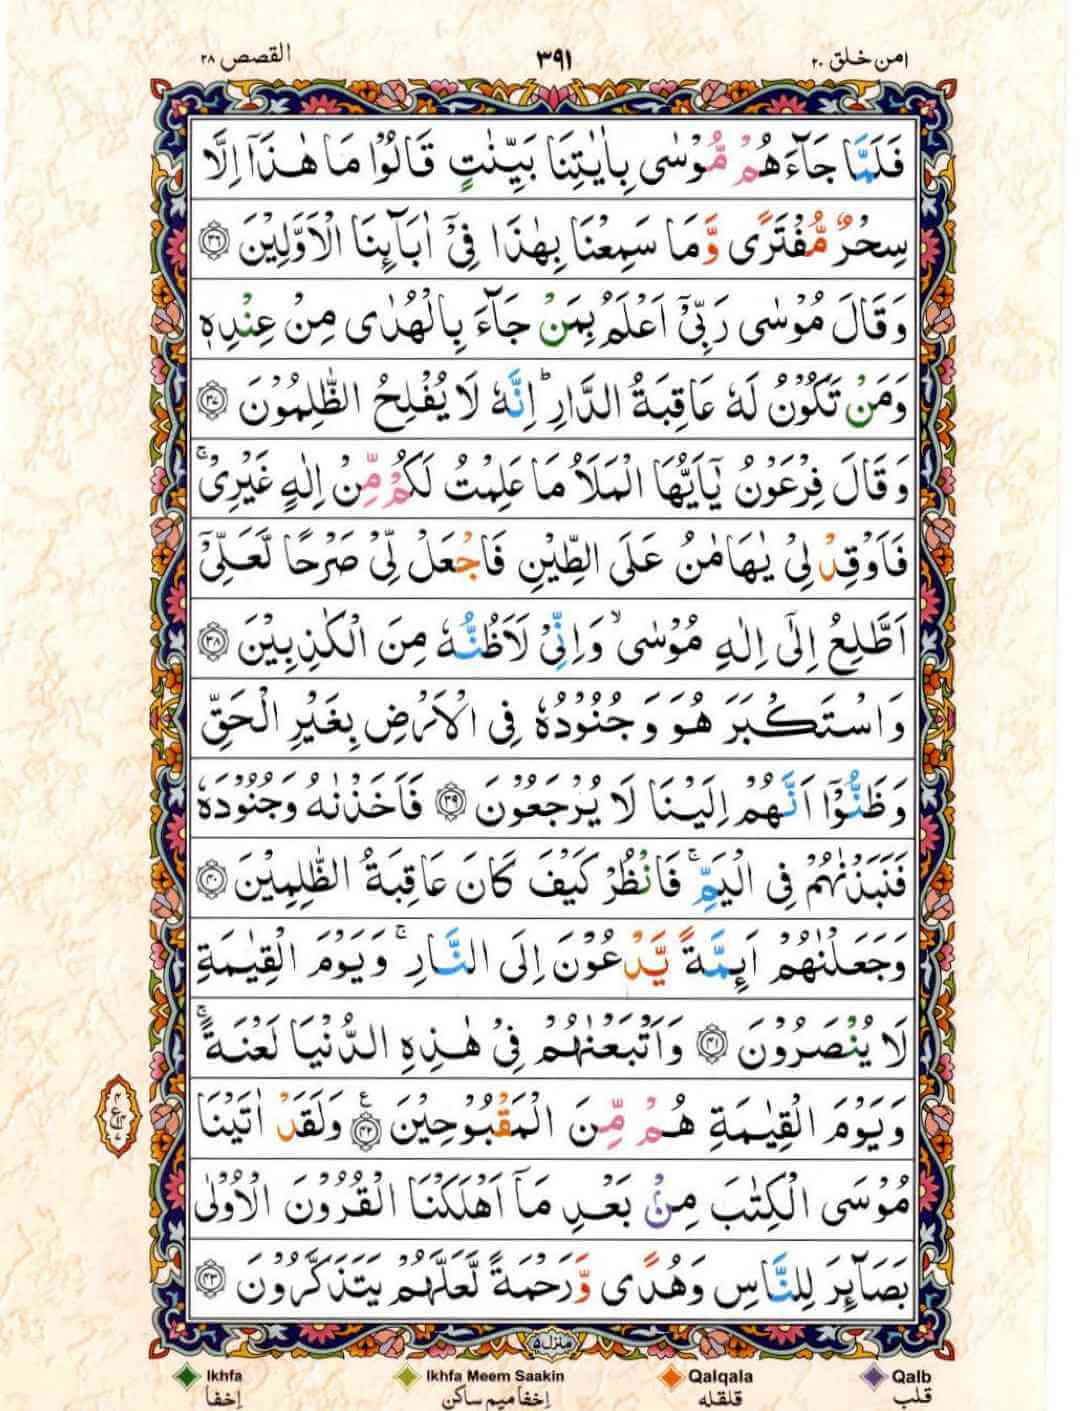 امن خلق ۲۰ ۳۹۱ القصص ۲۸
فَلَمَّا جَآءَهُمْ مُّوْسٰى بِاٰيٰتِنَا بَيِّنٰتٍ قَالُوْا مَا هٰذَآ اِلَّا
سِحْرٌ مُّفْتَرًى وَّمَا سَمِعْنَا بِهٰذَا فِىْٓ اٰبَآئِنَا الْاَوَّلِيْنَ ۳۶
وَقَالَ مُوْسٰى رَبِّىْٓ اَعْلَمُ بِمَنْ جَآءَ بِالْهُدٰى مِنْ عِنْدِهٖ
وَمَنْ تَكُوْنُ لَهٗ عَاقِبَةُ الدَّارِ ؕ اِنَّهٗ لَا يُفْلِحُ الظّٰلِمُوْنَ ۳۷
وَقَالَ فِرْعَوْنُ يٰٓاَيُّهَا الْمَلَاُ مَا عَلِمْتُ لَكُمْ مِّنْ اِلٰهٍ غَيْرِىْ ۚ
فَاَوْقِدْ لِىْ يٰهَامٰنُ عَلَى الطِّيْنِ فَاجْعَلْ لِّىْ صَرْحًا لَّعَلِّىْٓ
اَطَّلِعُ اِلٰٓى اِلٰهِ مُوْسٰى ۙ وَاِنِّىْ لَاَظُنُّهٗ مِنَ الْكٰذِبِيْنَ ۳۸
وَاسْتَكْبَرَ هُوَ وَجُنُوْدُهٗ فِى الْاَرْضِ بِغَيْرِ الْحَقِّ
وَظَنُّوْٓا اَنَّهُمْ اِلَيْنَا لَا يُرْجَعُوْنَ ۳۹ فَاَخَذْنٰهُ وَجُنُوْدَهٗ
فَنَبَذْنٰهُمْ فِى الْيَمِّ ۚ فَانْظُرْ كَيْفَ كَانَ عَاقِبَةُ الظّٰلِمِيْنَ ۴۰
وَجَعَلْنٰهُمْ اَئِمَّةً يَّدْعُوْنَ اِلَى النَّارِ ۚ وَيَوْمَ الْقِيٰمَةِ
لَا يُنْصَرُوْنَ ۴۱ وَاَتْبَعْنٰهُمْ فِىْ هٰذِهِ الدُّنْيَا لَعْنَةً ۚ
وَيَوْمَ الْقِيٰمَةِ هُمْ مِّنَ الْمَقْبُوْحِيْنَ ۴۲ ع وَلَقَدْ اٰتَيْنَا
مُوْسَى الْكِتٰبَ مِنْۢ بَعْدِ مَآ اَهْلَكْنَا الْقُرُوْنَ الْاُوْلٰى
بَصَآئِرَ لِلنَّاسِ وَهُدًى وَّرَحْمَةً لَّعَلَّهُمْ يَتَذَكَّرُوْنَ ۴۳
منزل ۵
Ikhfa Ikhfa Meem Saakin Qalqala Qalb
إخفا إخفا ميم ساكن قلقله قلب